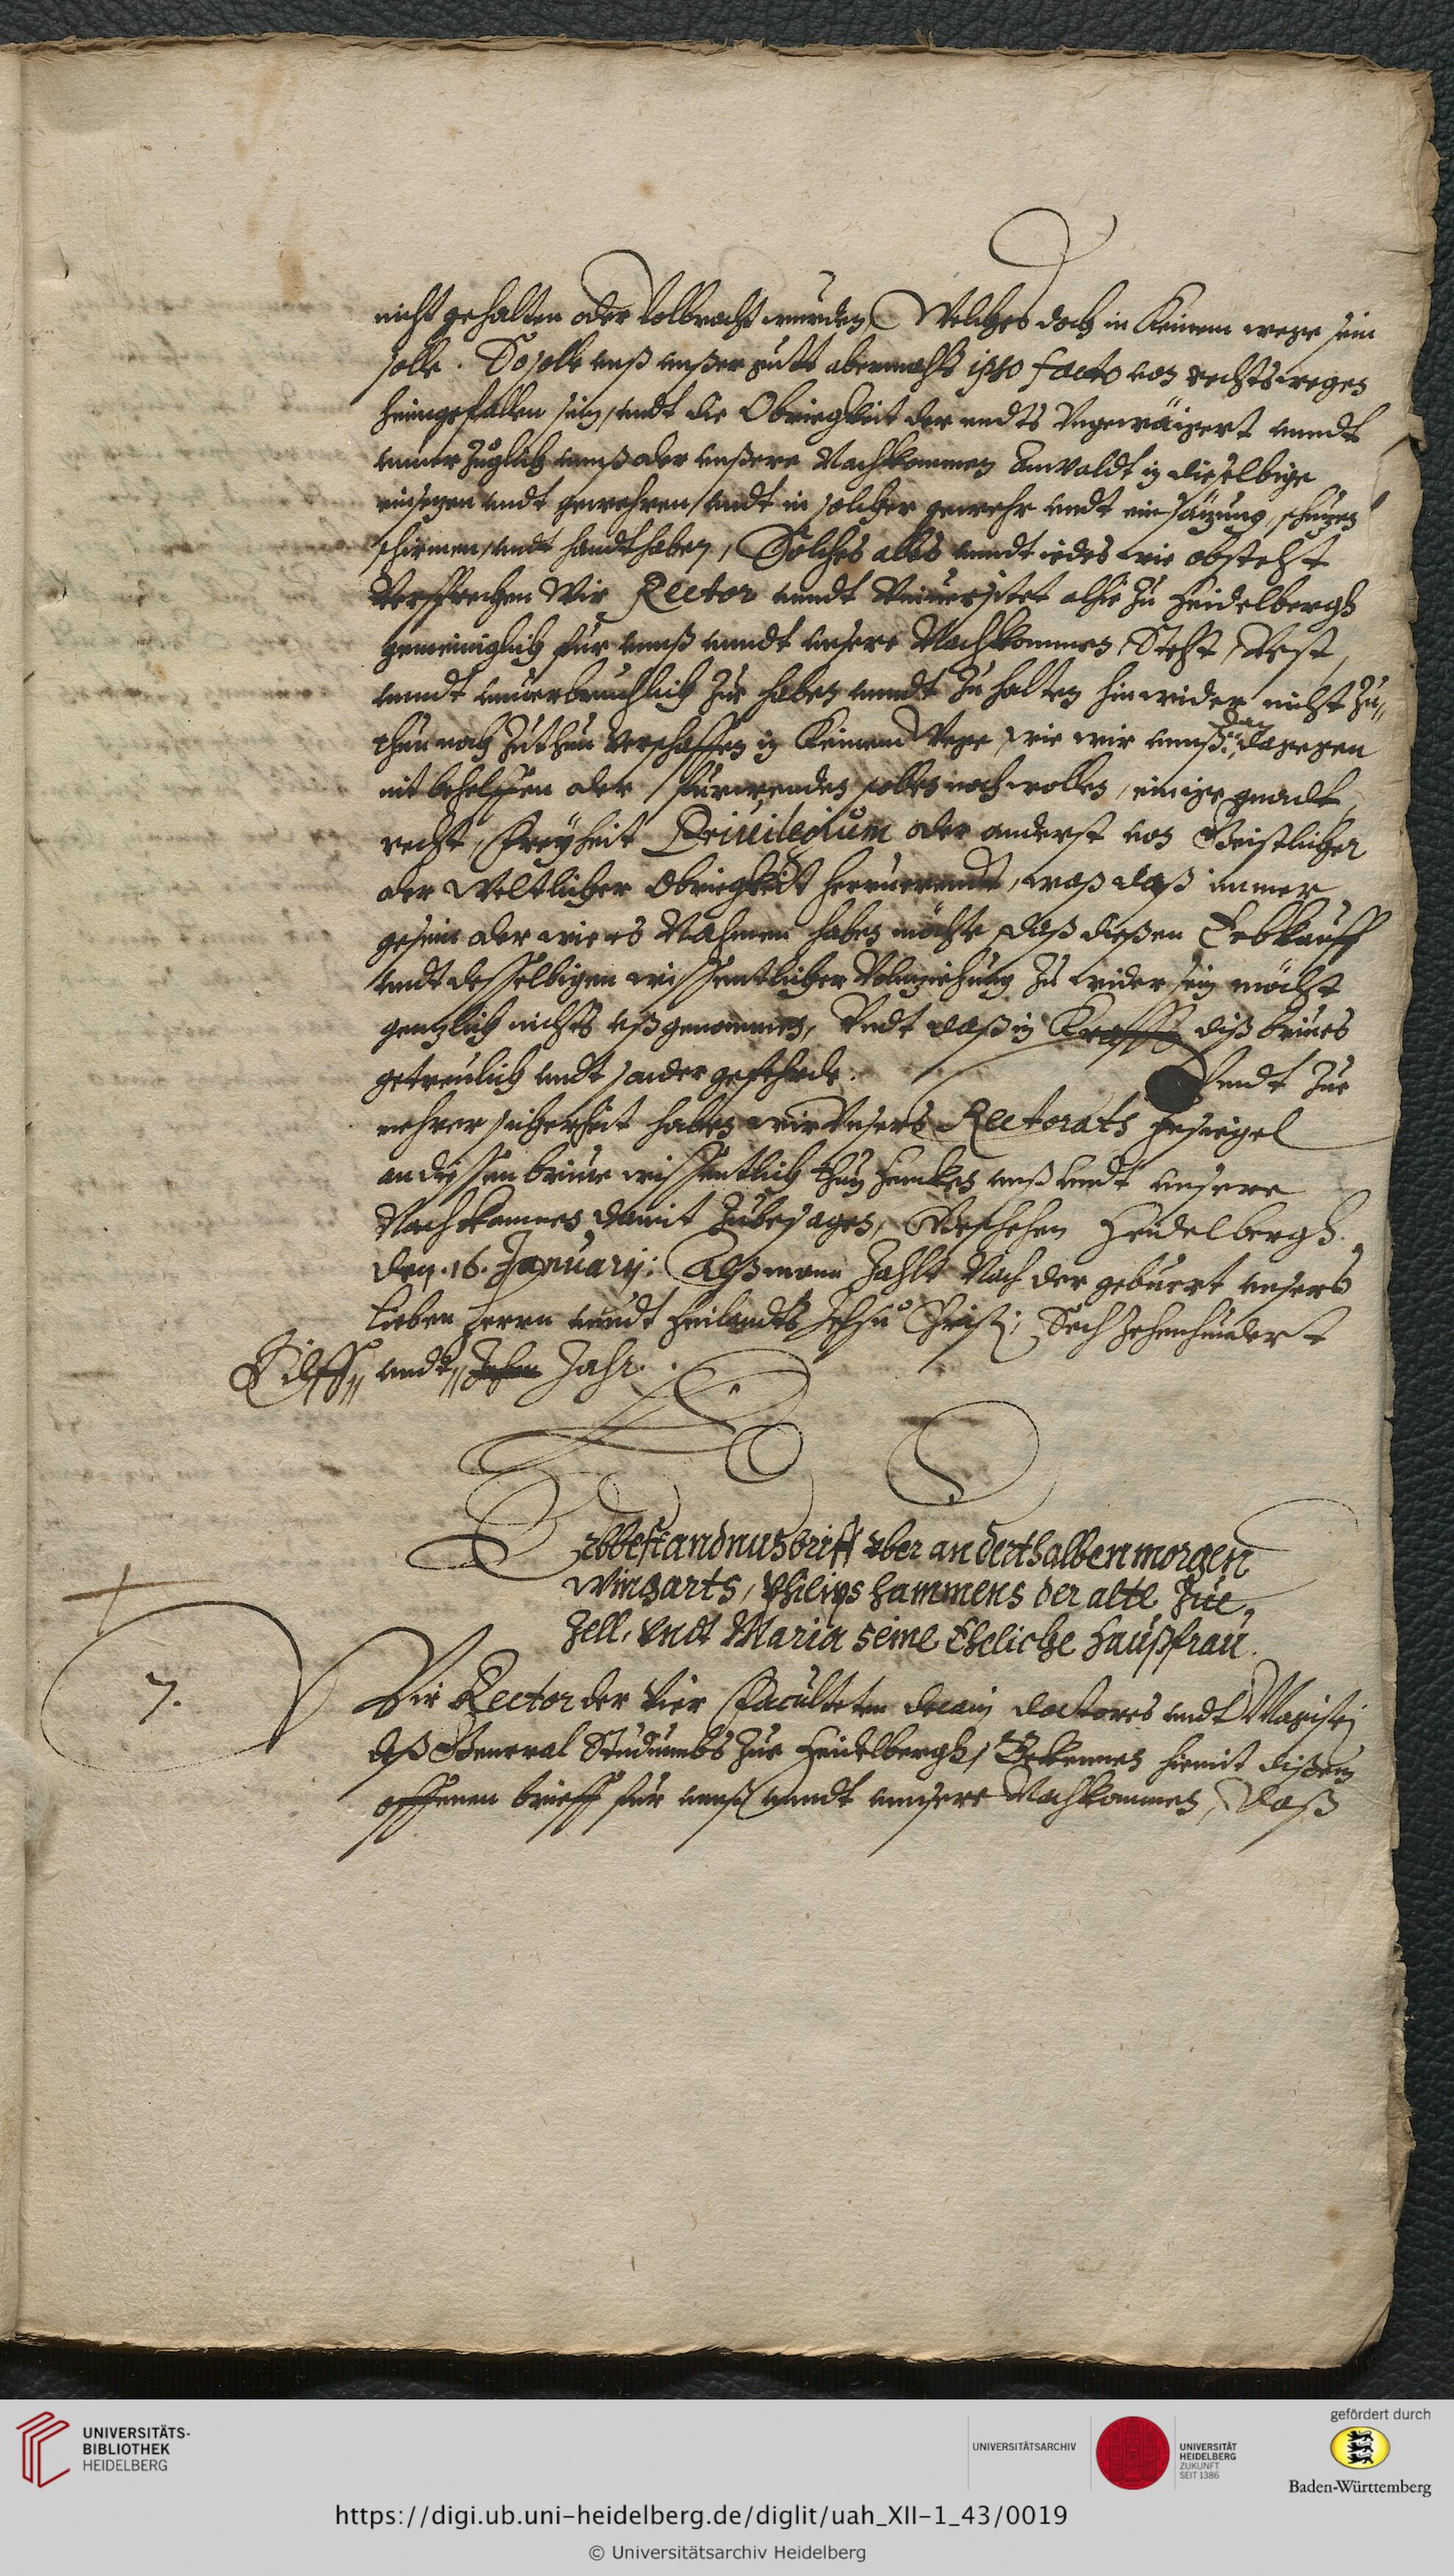 nicht gehalten oder volbracht wurden, Welches doch in Keinem wege sein
solle. So solle unß unßer gutt abermahls ipso facto von rechtswegen
heimgefallen sein, undt die Obrigkeit der endts Ungewäigert unndt
unuerzüglich unnß oder unßere Nachkommen Anwaldt in dieselbige
einsezen undt gewehren, undt in solcher gewehr undt einsäzung, schuzen
schirmen, undt handthaben, Solches alles unndt iedes wie obsteht
Versprechen Wir Rector unndt Uniuersitet alhie zu Heidelbergh
gemeiniglich für unnß unndt unsere Nachkommen Steht Vest,
unndt unuerbruchlich zue haben unndt zu halten hinwider nicht zu„
thun noch zuthun verschaffen in Keinem Wege, wie wir unnß dan dagegen
nit behelffen oder fürwenden sollen noch wollen, einige gnadt,
recht, Freyheit Priuilegium oder anderst von Geistlicher
oder Weltlicher Obrigkeit herruerendt, waß daß immer
gesein oder wie es Nahmen haben möchte, daß dießen Erbkauff
undt desselbigen wissentlicher Volnziehung zu wider sein möcht
genzlich nichts ußgenommen, Undt daß in Krafft diß brieues
getreulich undt sonder gefehrde. Undt zue
mehrer sicherheit haben wir Unsers Rectorats Insiegel
an dissen brieue wissentlich thun hencken unß undt unsere
Nachkommen damit zubesagen, Geschehen Heidelbergh.
den .16. January: Alß mann zahlt Nach der gebuert unsers
lieben Herrn unndt Heilandts Jesu Christi, Sechzehenhundert
Eilff„ undt„ Zehen Jahr.
Erbbestandnusbriff vber anderthalben morgen
Wingarts, Philips hammens der alte zue„
Zell, Undt Maria seine Eheliche haußfrau.
7.
Wir Rector der Vier Faculteten decani doctores undt Magistri
deß General Studiumbs zue Heidelbergh, Bekennen hiemit dißem
offenen brieff für unnß unndt unnsere Nachkommen, Daß
UNIVERSITÄTS-
BIBLIOTHEK
HEIDELBERG
UNIVERSITÄTSARCHIV
UNIVERSITÄT
HEIDELBERG
ZUKUNFT
SEIT 1386
gefördert durch
Baden-Württemberg
https://digi.ub.uni-heidelberg.de/diglit/uah_XII-1_43/0019
© Universitätsarchiv Heidelberg